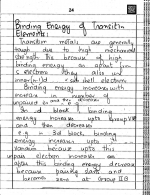 24
Binding Energy of Transition
Elements:
Transition metals are generally
tough due to high mechanical
strength. It is because of high
binding energy. As after (n
s electrons they also use
(n-1) d sub shell electrons
Binding energy increases with
increase in number of
unpaired e- and then decreases
In block binding
energy increases upto group VIB
and then decreases
e.g in 3d block, binding
energy increases upto
vanadium because upto this
unpair electron increases and
after this binding energy decrease
because pairing starts and
becomes zero at Group IIB